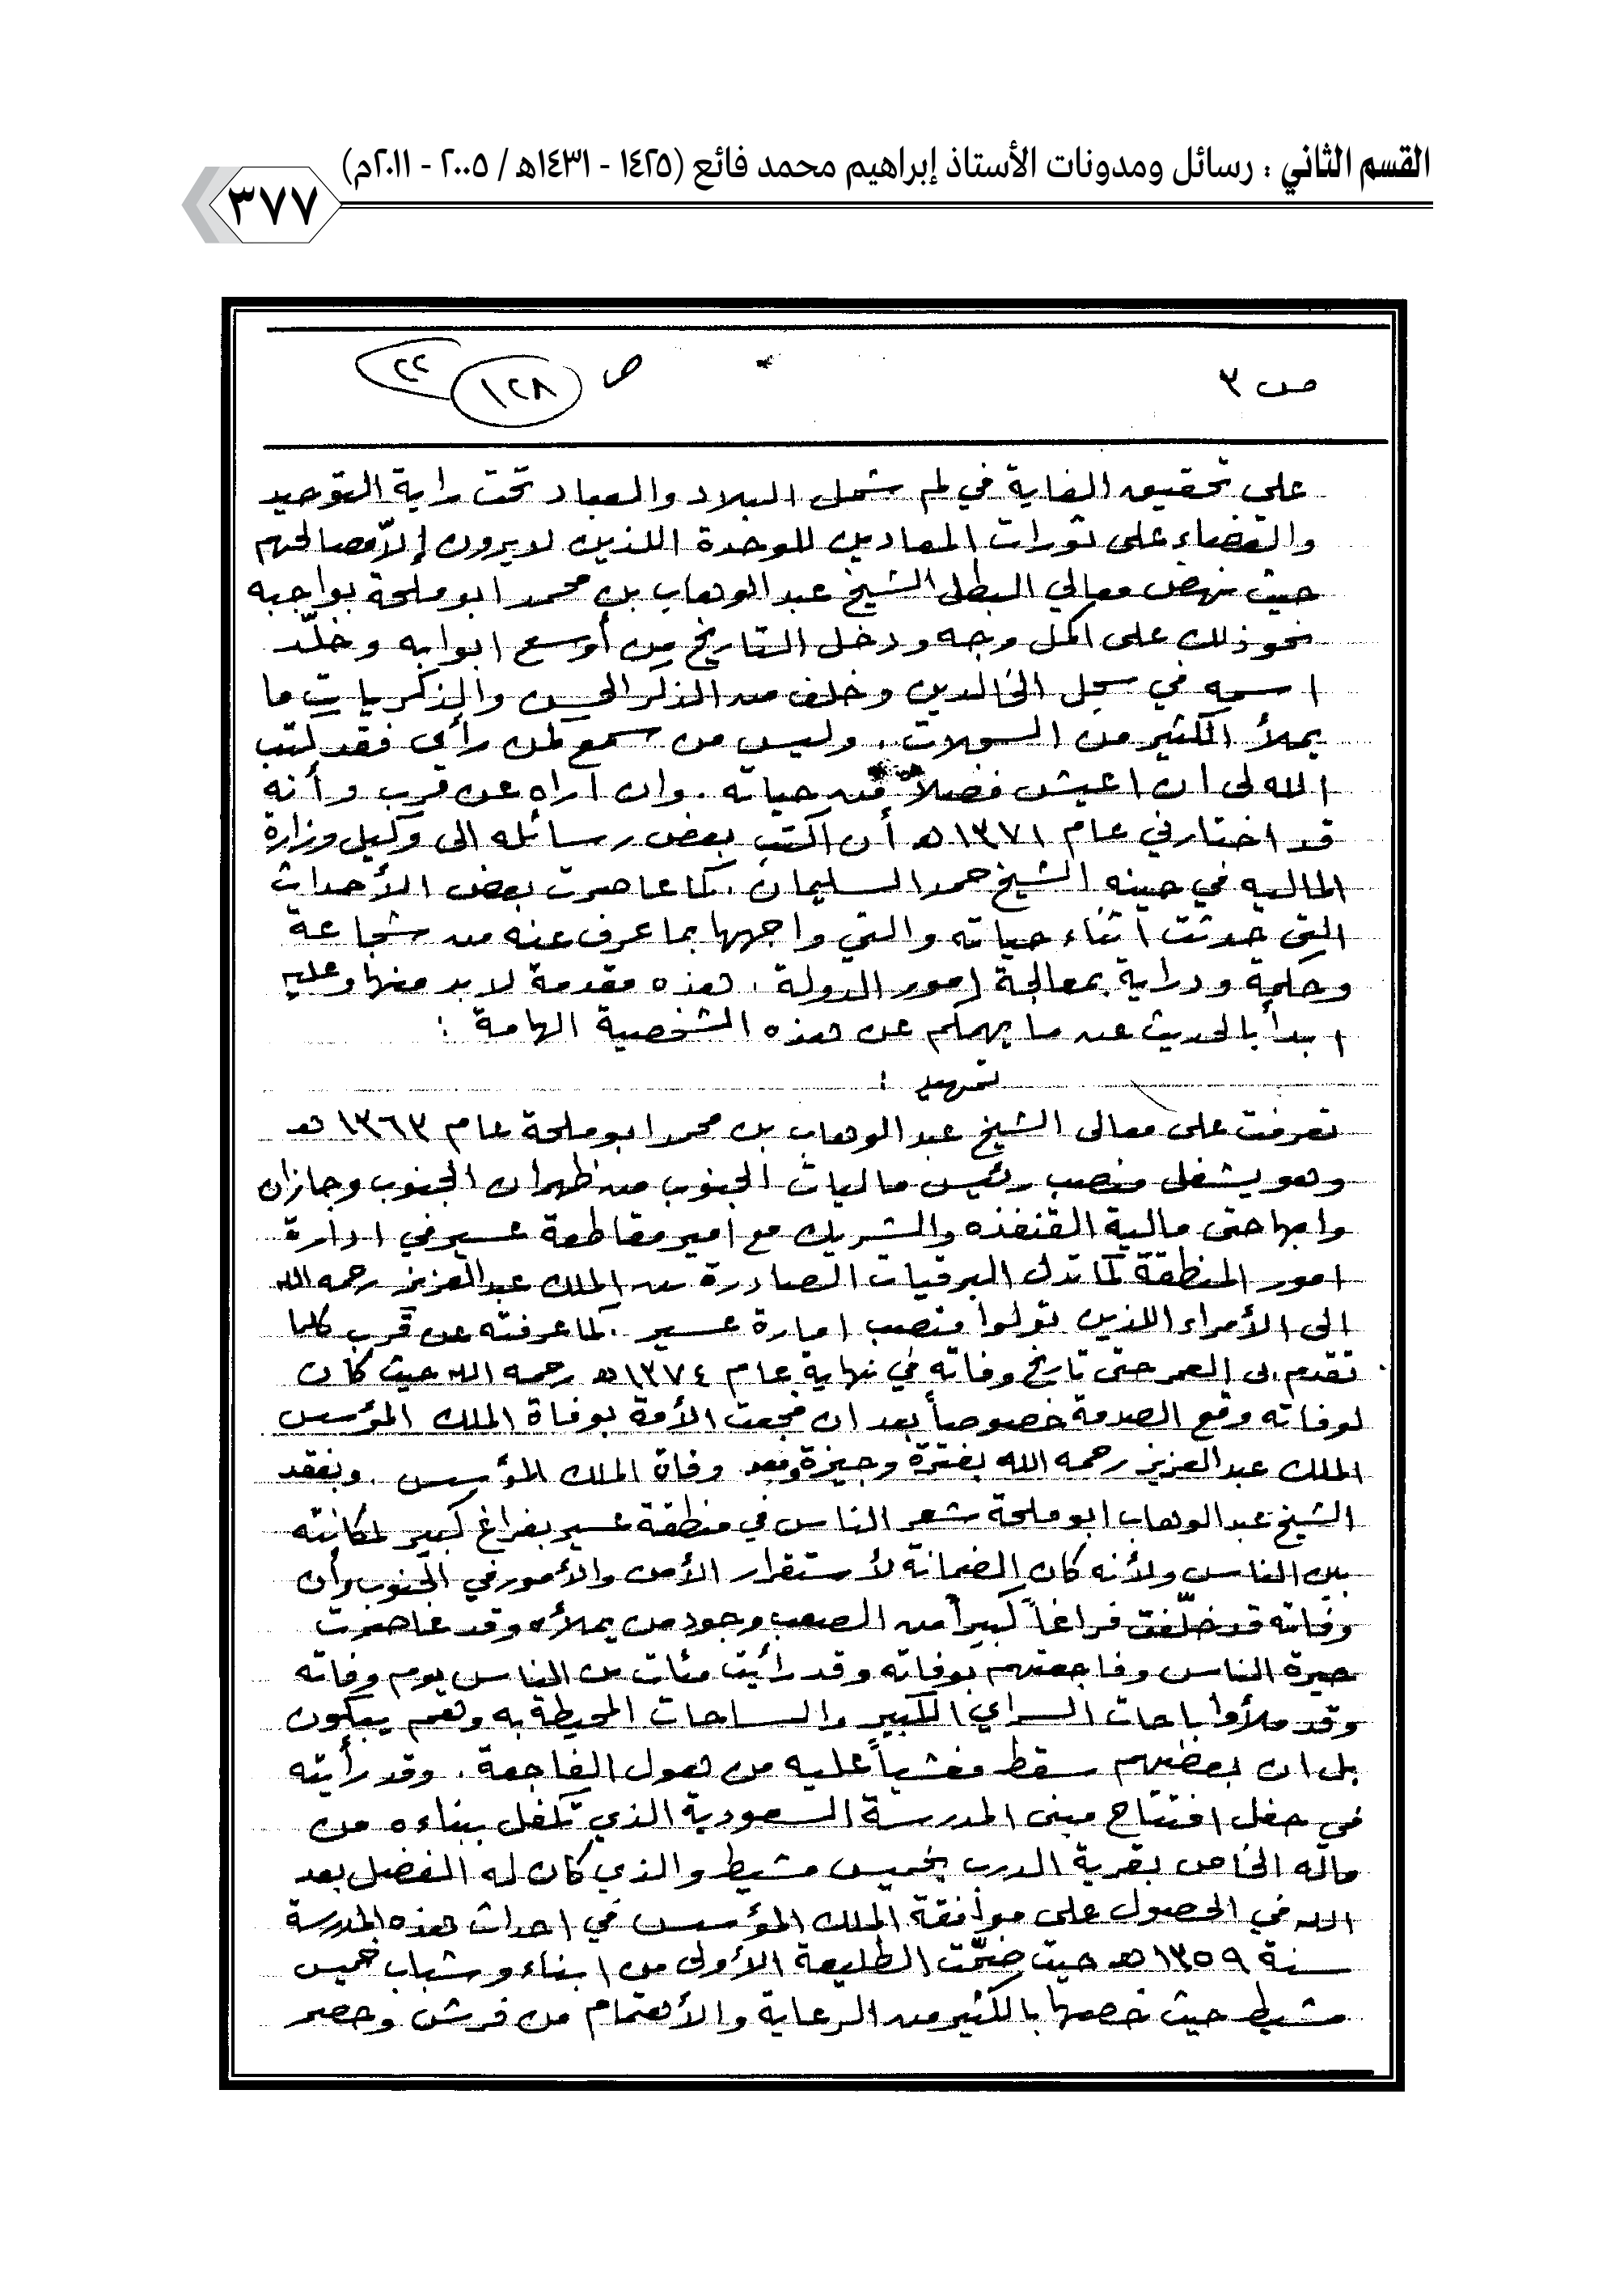 القسم الثاني : رسائل ومدونات الأستاذ إبراهيم محمد فائع (١٤٢٥ - ١٤٣١هـ / ٢٠٠٥ - ٢٠١١م)
٣٧٧
ص ٣
ص ١٢٨ ٢٢
على تحقيق الغاية في لم شمل البلاد والعباد تحت راية التوحيد
والقضاء على ثورات المعادين للوحدة اللذين لا يرون إلاّ مصالحهم
حيث نهض معالي البطل الشيخ عبد الوهاب بن محمد ابو ملحة بواجبه
نحو ذلك على اكمل وجه ودخل التاريخ من أوسع ابوابه وخلّد
اسمه في سجل الخالدين وخلف من الذكر الحسن والذكريات ما
يملأ الكثير من السجلات . وليس من سمع كمن رأى فقد كتب
الله لى ان اعيش فصلاً من حياته . وان اراه عن قرب وأنه
قد اختارني عام ١٣٧١ هـ أن اكتب بعض رسائله الى وكيل وزارة
المالية في حينه الشيخ حمد السليمان . كما عاصرت بعض الأحداث
التي حدثت اثناء حياته والتي واجهها بما عرف عنه من شجاعة
وحكمة ودراية بمعالجة امور الدولة . هذه مقدمة لا بد منها وعليه
ابدأ بالحديث عن ما يهمكم عن هذه الشخصية الهامة :
تمهيد :
تعرفت على معالى الشيخ عبد الوهاب بن محمد ابو ملحة عام ١٣٦٣ هـ
وهو يشغل منصب رئيس ماليات الجنوب من ظهران الجنوب وجازان
وابها حتى مالية القنفذه والشريك مع امير مقاطعة عسير في ادارة
امور المنطقة كما تدل البرقيات الصادرة من الملك عبد العزيز رحمه الله
الى الأمراء اللذين تولوا منصب امارة عسير . كما عرفته عن قرب كلما
تقدم بى العمر حتى تاريخ وفاته في نهاية عام ١٣٧٤ هـ رحمه الله حيث كان
لوفاته وقع الصدمة خصوصاً بعد ان فجعت الأمة بوفاة الملك المؤسس
الملك عبد العزيز رحمه الله بفترة وجيزة وبعد وفاة الملك المؤسس . وبفقد
الشيخ عبد الوهاب ابو ملحة شعر الناس في منطقة عسير بفراغ كبير لمكانته
بين الناس ولأنه كان الضمانة لأستقرار الأمن والأمور في الجنوب وأن
وفاته قد خلّفت فراغاً كبيراً من الصعب وجود من يملأه وقد عاصرت
حيرة الناس وفاجعتهم بوفاته وقد رأيت مئات من الناس يوم وفاته
وقد ملأوا باحات السراي الكبير والساحات المحيطة به وهم يبكون
بل ان بعضهم سقط مغشياً عليه من هول الفاجعة . وقد رأيته
في حفل افتتاح مبنى المدرسة السعودية الذي تكفل ببناءه من
ماله الخاص بقرية الدرب بخميس مشيط والذي كان له الفضل بعد
الله في الحصول على موافقة الملك المؤسس في احداث هذه المدرسة
سنة ١٣٥٩ هـ حيث ضمّت الطليعة الأولى من ابناء وشباب خميس
مشيط حيث خصها بالكثير من الرعاية والأهتمام من فرش وحصر